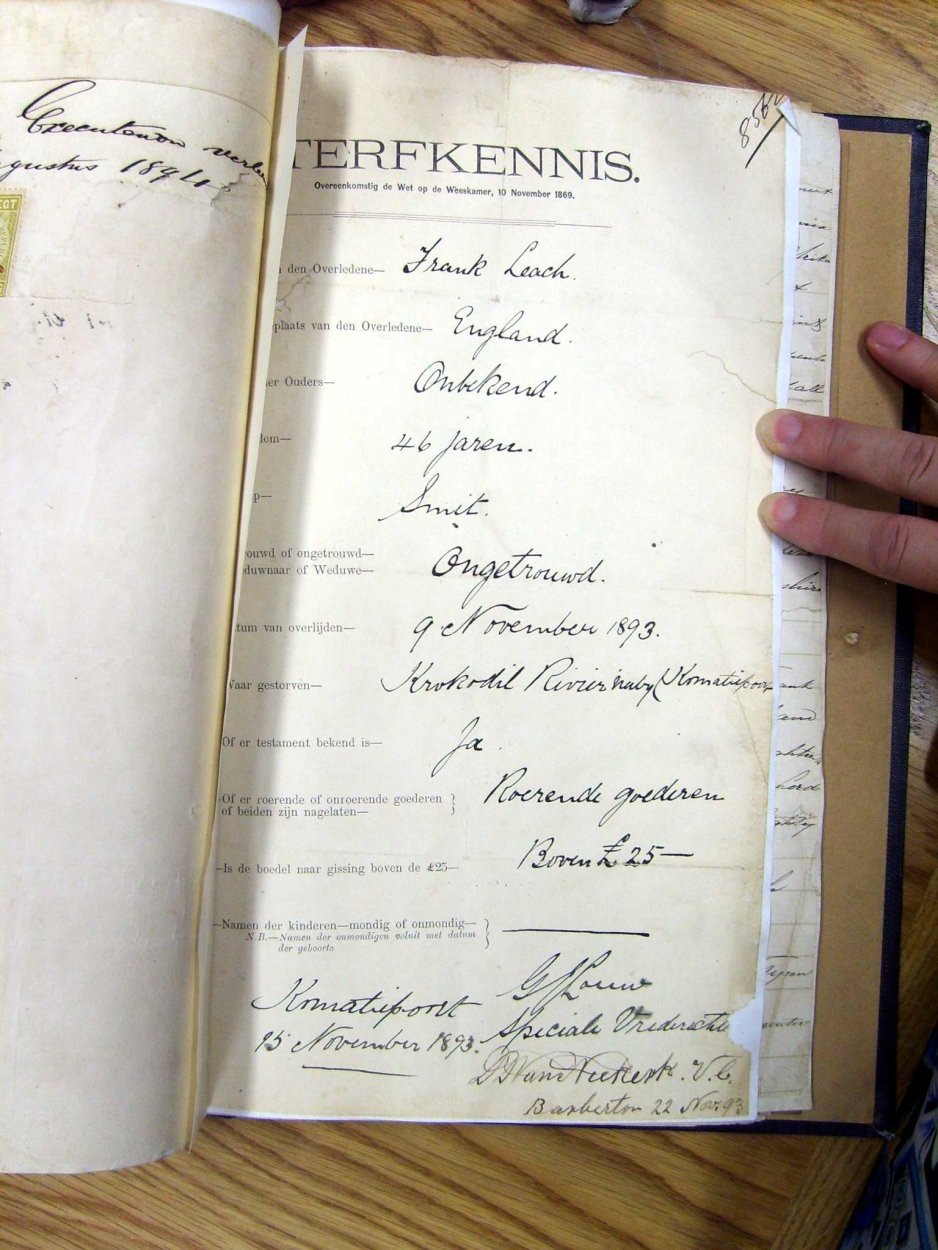 Executeuren verleen
gustus 1894
EGT
8562
TERFKENNIS.
Overeenkomstig de Wet op de Weeskamer, 10 November 1869.
den Overledene— Frank Leach.
plaats van den Overledene— England.
er Ouders— Onbekend.
dom— 46 jaren.
p— Smit.
rouwd of ongetrouwd—
eduwnaar of Weduwe— Ongetrouwd.
tum van overlijden— 9 November 1893.
Waar gestorven— Krokodil Rivier naby (Komatiepoort
Of er testament bekend is— Ja.
Of er roerende of onroerende goederen } Roerende goederen
of beiden zijn nagelaten—
Is de boedel naar gissing boven de £25— Boven £25—
Namen der kinderen—mondig of onmondig— }
N.B.—Namen der onmondigen voluit met datum
der geboorte
Komatiepoort G J Louw
15 November 1893. Speciale Vrederechte
V.C.
Barberton 22 Nov. 93